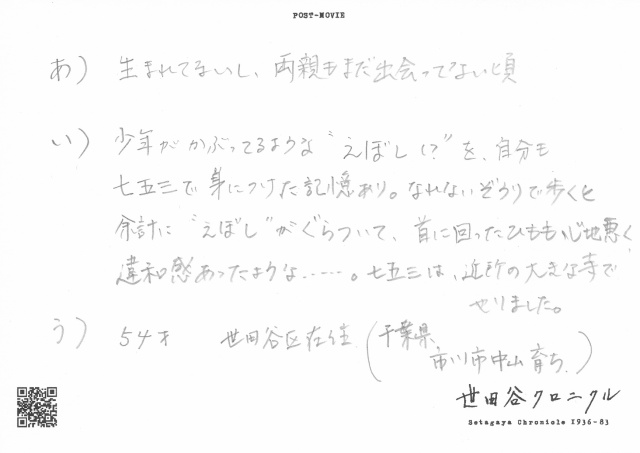 POST-MOVIE
あ) 生まれてないし、両親もまだ出会ってない頃
い) 少年がかぶってるような“えぼし(?”を、自分も
七五三で身につけた記憶あり。なれないぞうりで歩くと
余計に“えぼし”がぐらついて、首に回ったひももいじ地悪く
違和感あったような……。七五三は、近所の大きな寺で
やりました。
う) 54才 世田谷区在住 (千葉県
市川市中山育ち.)
世田谷クロニクル
Setagaya Chronicle 1936-83